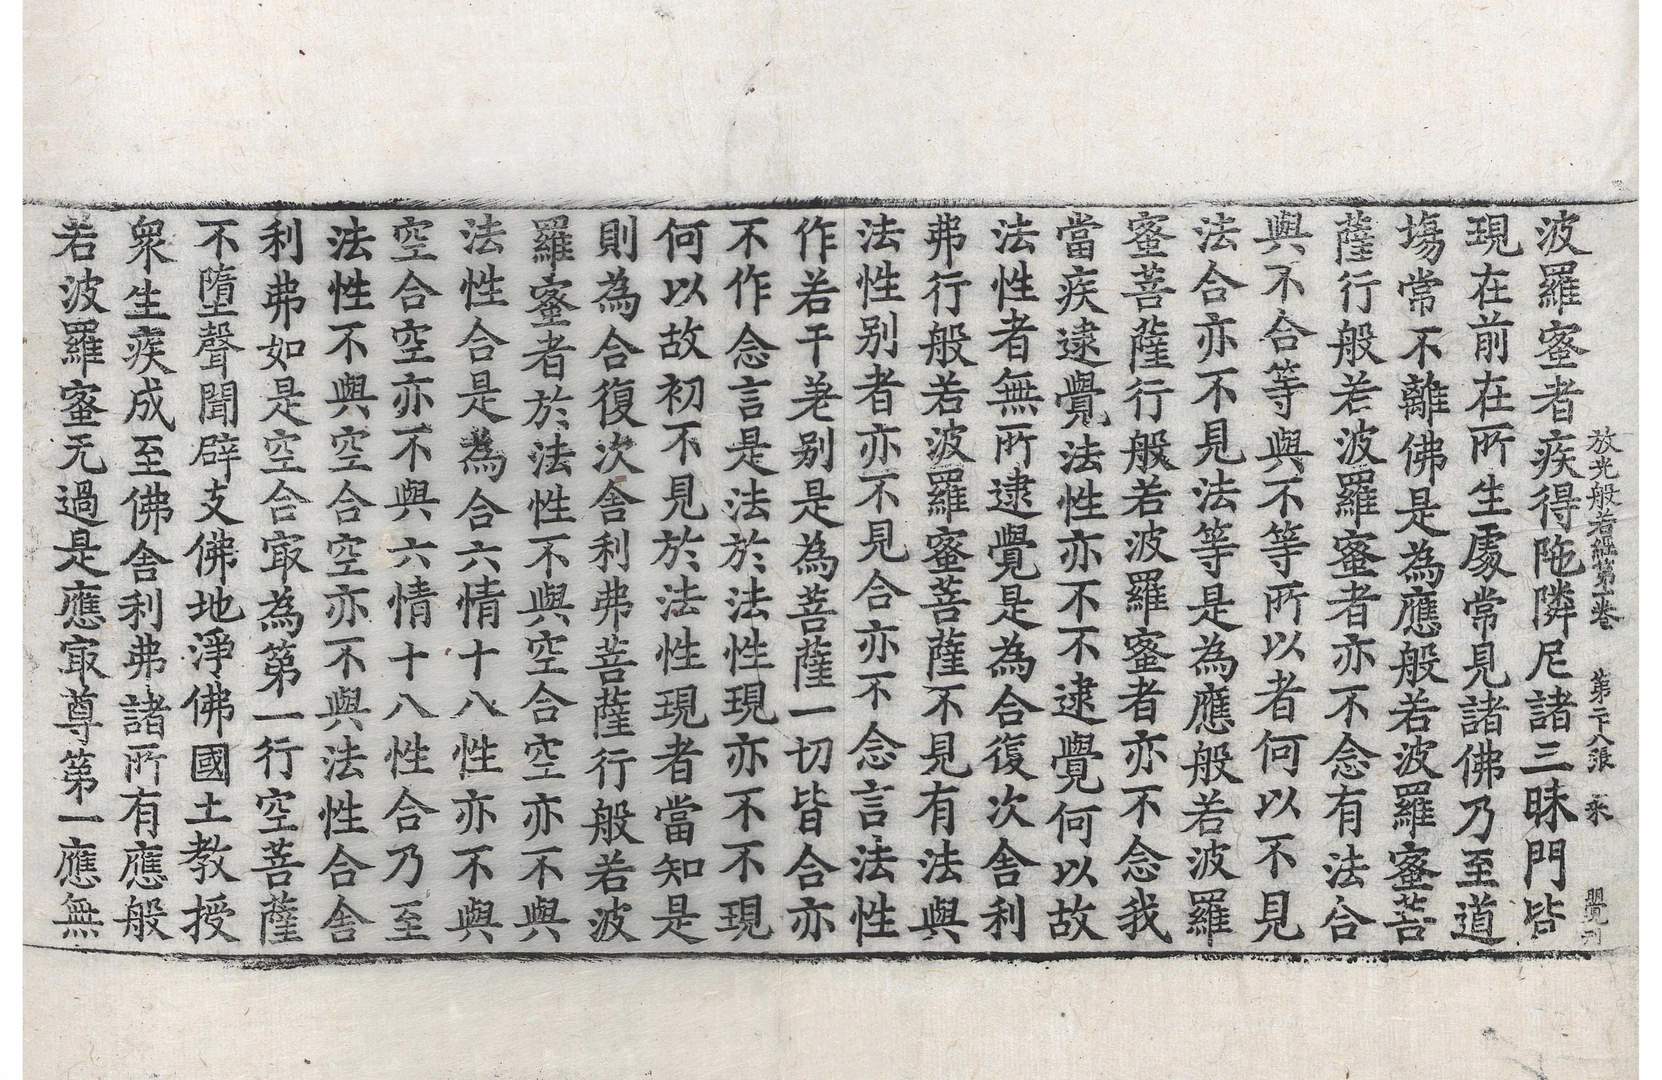 放光般若經第一卷 第二十八張 來 覺刊
波羅蜜者疾得陁隣尼諸三昧門皆
現在前在所生處常見諸佛乃至道
場常不離佛是為應般若波羅蜜菩
薩行般若波羅蜜者亦不念有法合
與不合等與不等所以者何以不見
法合亦不見法等是為應般若波羅
蜜菩薩行般若波羅蜜者亦不念我
當疾逮覺法性亦不不逮覺何以故
法性者無所逮覺是為合復次舍利
弗行般若波羅蜜菩薩不見有法與
法性別者亦不見合亦不念言法性
作若干差別是為菩薩一切皆合亦
不作念言是法於法性現亦不不現
何以故初不見於法性現者當知是
則為合復次舍利弗菩薩行般若波
羅蜜者於法性不與空合空亦不與
法性合是為合六情十八性亦不與
空合空亦不與六情十八性合乃至
法性不與空合空亦不與法性合舍
利弗如是空合㝡為第一行空菩薩
不墮聲聞辟支佛地淨佛國土教授
衆生疾成至佛舍利弗諸所有應般
若波羅蜜无過是應㝡尊第一應無